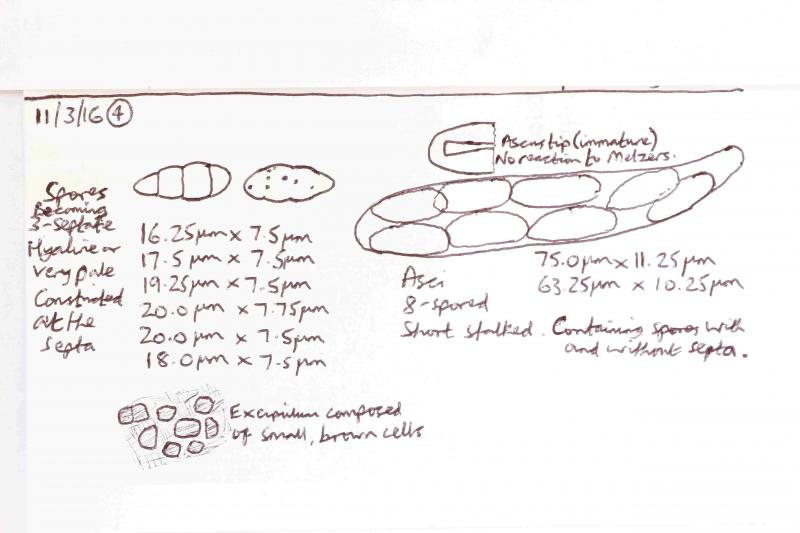 11/3/16 ④
Ascus tip (immature)
No reaction to Melzers.
Spores
Becoming
3-septate
Hyaline or
very pale
Constricted
at the
septa
16.25µm x 7.5µm
17.5µm x 7.5µm
19.25µm x 7.5µm
20.0µm x 7.75µm
20.0µm x 7.5µm
18.0µm x 7.5µm
75.0µm x 11.25µm
63.25µm x 10.25µm
Asci
8-spored
Short stalked. Containing spores with
and without septa.
Excipulum composed
of small, brown cells